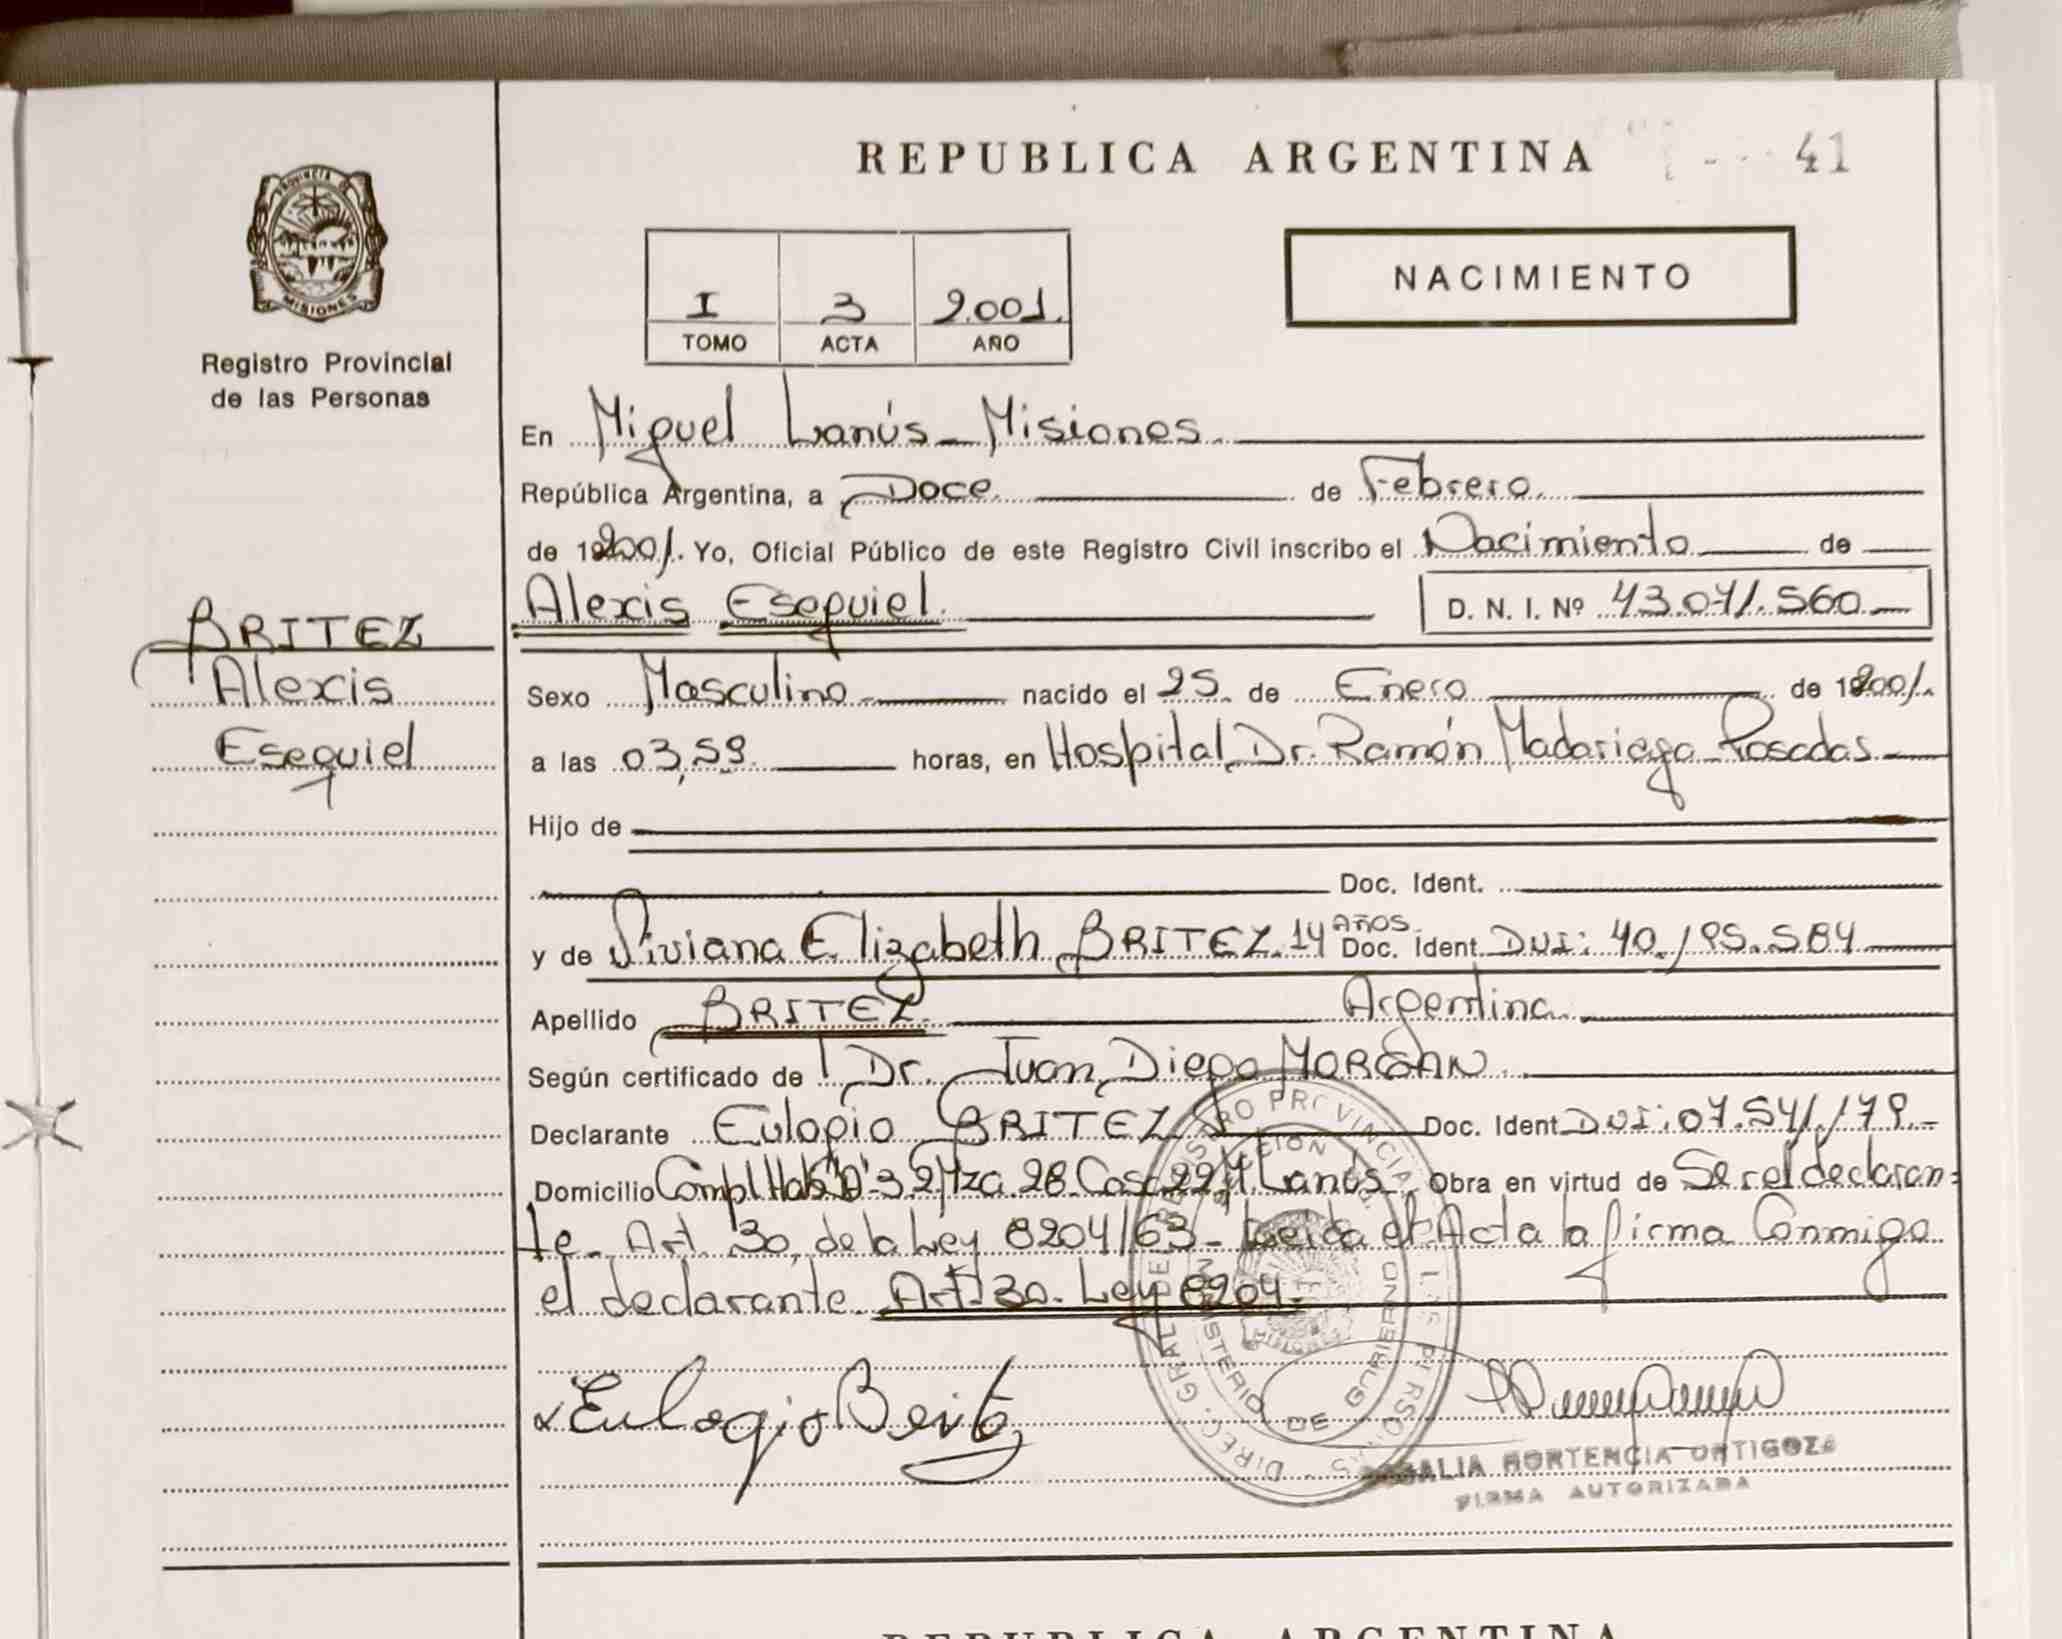 REPUBLICA ARGENTINA
41
PROVINCIA DE
MISIONES
Registro Provincial
de las Personas
I 3 2.001.
TOMO ACTA AÑO
NACIMIENTO
En Miguel Lanús - Misiones.
República Argentina, a Doce de Febrero.
de 2001. Yo, Oficial Público de este Registro Civil inscribo el Nacimiento de
Alexis Esequiel. D. N. I. Nº 43.041.560
BRITEZ
Alexis
Esequiel
Sexo Masculino nacido el 25. de Enero de 2001.
a las 03,59. horas, en Hospital Dr. Ramón Madariaga - Posadas.
Hijo de
Doc. Ident.
y de Viviana Elizabeth BRITEZ. 14 AÑOS. Doc. Ident. DNI: 40.195.584
Apellido BRITEZ. Argentina.
Según certificado de Dr. Juan Diego MORGAN.
Declarante Eulogio BRITEZ Doc. Ident. DNI: 07.541.179.-
Domicilio Lanús. Obra en virtud de Ser el declaran=
te. Art. 30, de la Ley 8204/63 - Leida el Acta la firma Conmigo
el declarante. Art. 30. Ley 8204.
Eulogio Beritez
HORTENCIA ORTIGOZA
FIRMA AUTORIZADA
MINISTERIO DE GOBIERNO
REPUBLICA ARGENTINA